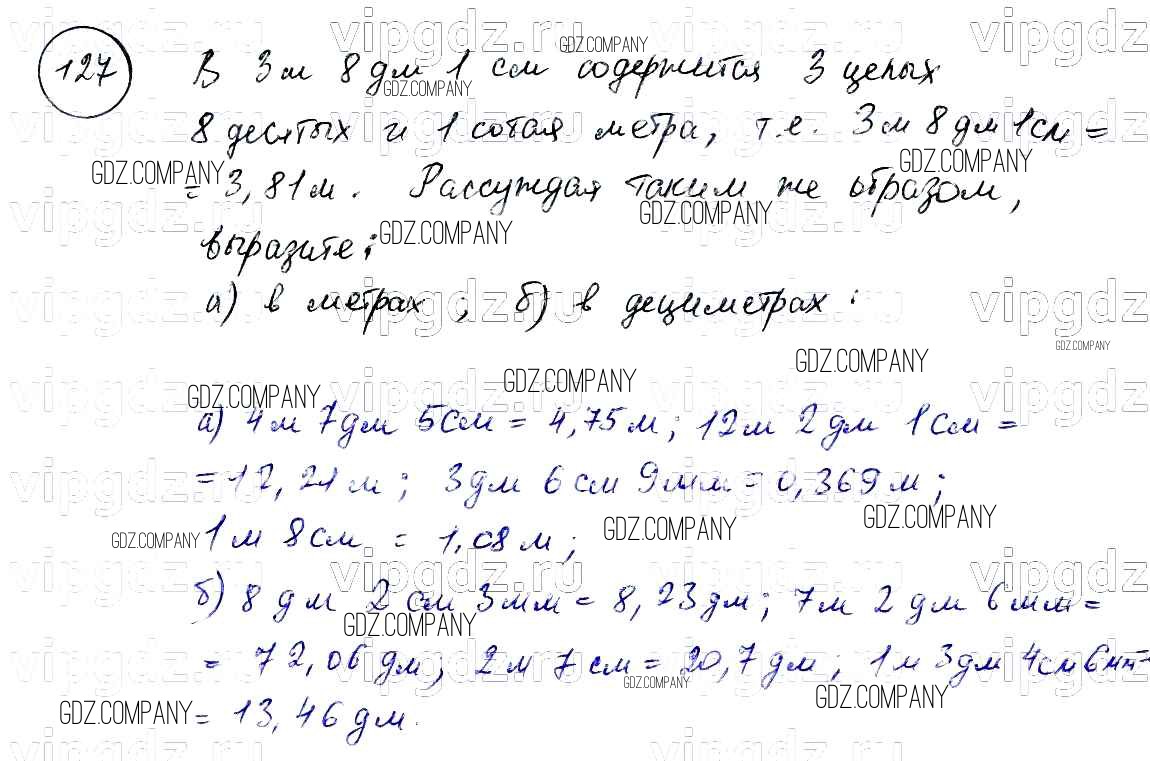 127 В 3 м 8 дм 1 см содержится 3 целых
8 десятых и 1 сотая метра, т.е. 3 м 8 дм 1 см =
= 3,81 м. Рассуждая таким же образом,
выразите:
а) в метрах ; б) в дециметрах :
а) 4 м 7 дм 5 см = 4,75 м; 12 м 2 дм 1 см =
= 12,21 м; 3 дм 6 см 9 мм = 0,369 м;
1 м 8 см = 1,08 м;
б) 8 дм 2 см 3 мм = 8,23 дм; 7 м 2 дм 6 мм =
= 72,06 дм; 2 м 7 см = 20,7 дм; 1 м 3 дм 4 см 6 мм
= 13,46 дм.